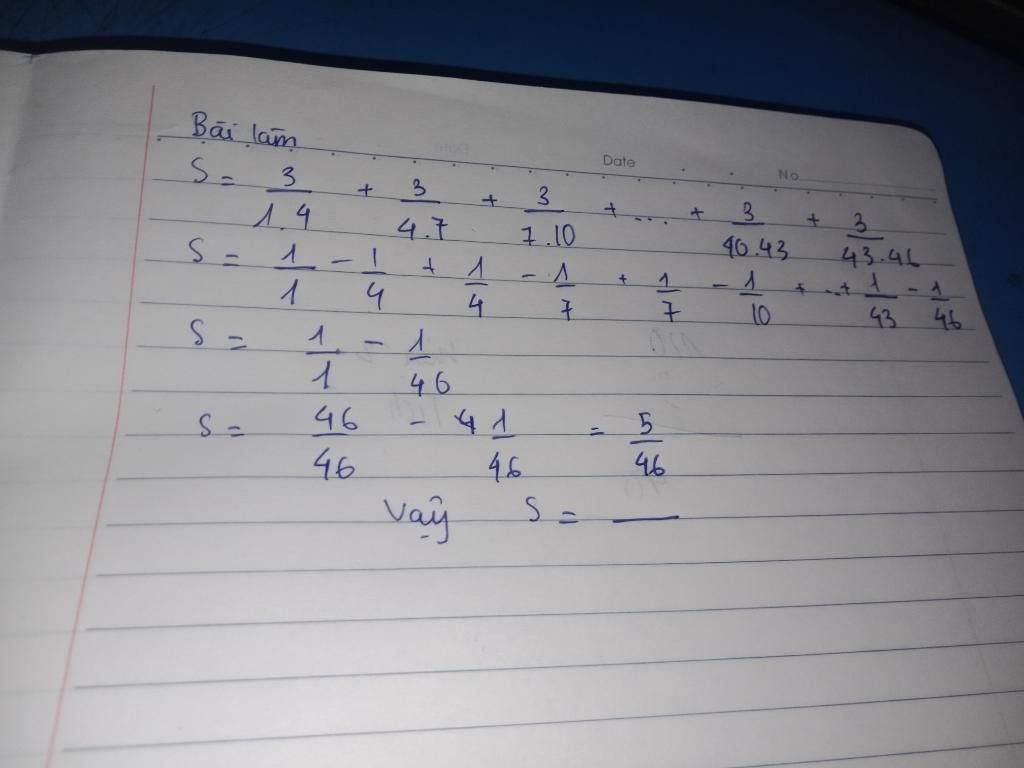 Bài làm
Date No
S = 3/1.4 + 3/4.7 + 3/7.10 + ... + 3/40.43 + 3/43.46
S = 1/1 - 1/4 + 1/4 - 1/7 + 1/7 - 1/10 + ..+ 1/43 - 1/46
S = 1/1 - 1/46
S = 46/46 - 1/46 = 5/46
Vậy S = —